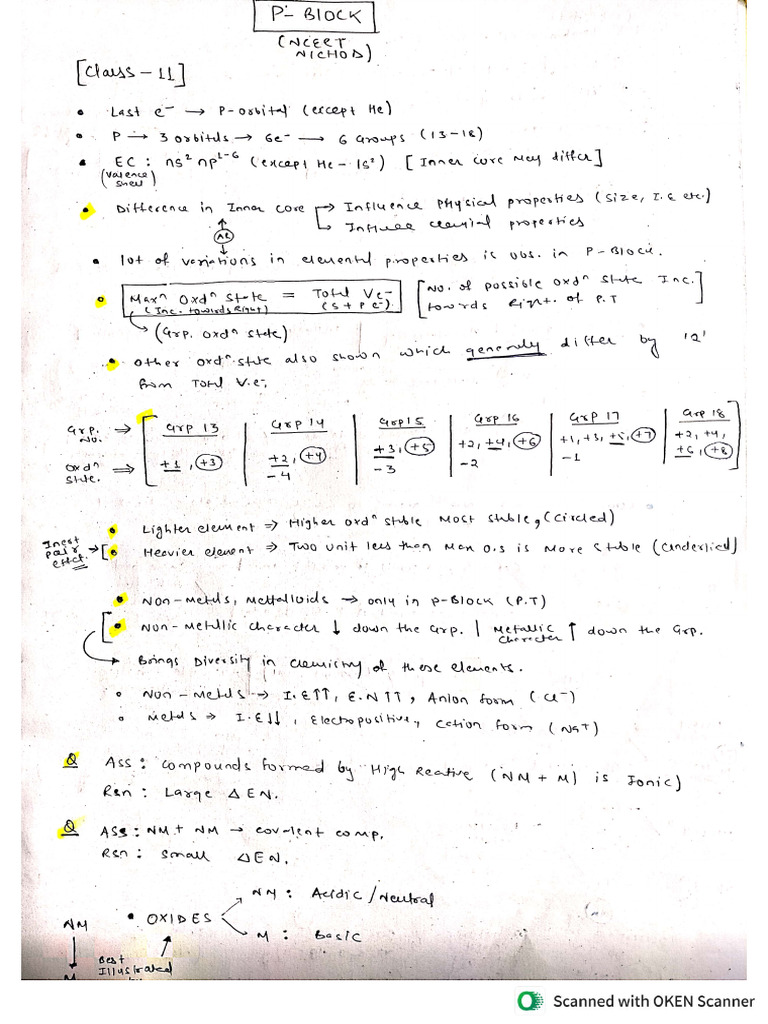 P-BLOCK
(NCERT
NICHOD)
[Class-11]
• Last e⁻ → P-orbital (except He)
• P → 3 orbitals → 6e⁻ → 6 Groups (13-18)
• EC : ns² np¹⁻⁶ (except He - 1s²) [Inner core May differ]
(Valence shell)
• Difference in Inner core → Influence Physical properties (Size, I.E etc.)
→ Influence chemical properties
• lot of variations in elemental properties is obs. in P-Block.
• Maxⁿ Oxdⁿ State = Total Ve⁻ (S+P e⁻) [No. of possible Oxdⁿ State Inc.
(Inc. towards Right) towards Right. of P.T]
(Grp. Oxdⁿ State)
• Other Oxdⁿ state also shown which generally differ by '2'
from Total V.e⁻
Grp. No. → Grp 13 | Grp 14 | Grp 15 | Grp 16 | Grp 17 | Grp 18
Oxdⁿ State. → +1, +3 | +2, +4 | +3, +5 | +2, +4, +6 | +1, +3, +5, +7 | +2, +4,
-4 | -3 | -2 | -1 | +6, +8
• Lighter element ⇒ Higher Oxdⁿ stable Most stable, (circled)
Inert pair effect. → [• Heavier element ⇒ Two unit less than Max O.S is More Stable (Underlied]
• Non-Metals, Mettalloids → only in p-Block (P.T)
• Non-Metallic character ↓ down the Grp. | Metallic character ↑ down the Grp.
→ Brings Diversity in chemistry of these elements.
• Non-Metals → I.E↑↑, E.N↑↑, Anion form (Cl⁻)
• Metals → I.E↓↓, Electropositive, Cation form (Na+)
Q Ass : Compounds formed by High Reative (NM + M) is Ionic)
Rsn : Large Δ EN.
Q Ass : NM + NM → covlent comp.
Rsn : small ΔEN.
NM : Acidic/Neutral
• OXIDES
M : Basic
NM
↓
M
Best
Illustrated
Scanned with OKEN Scanner